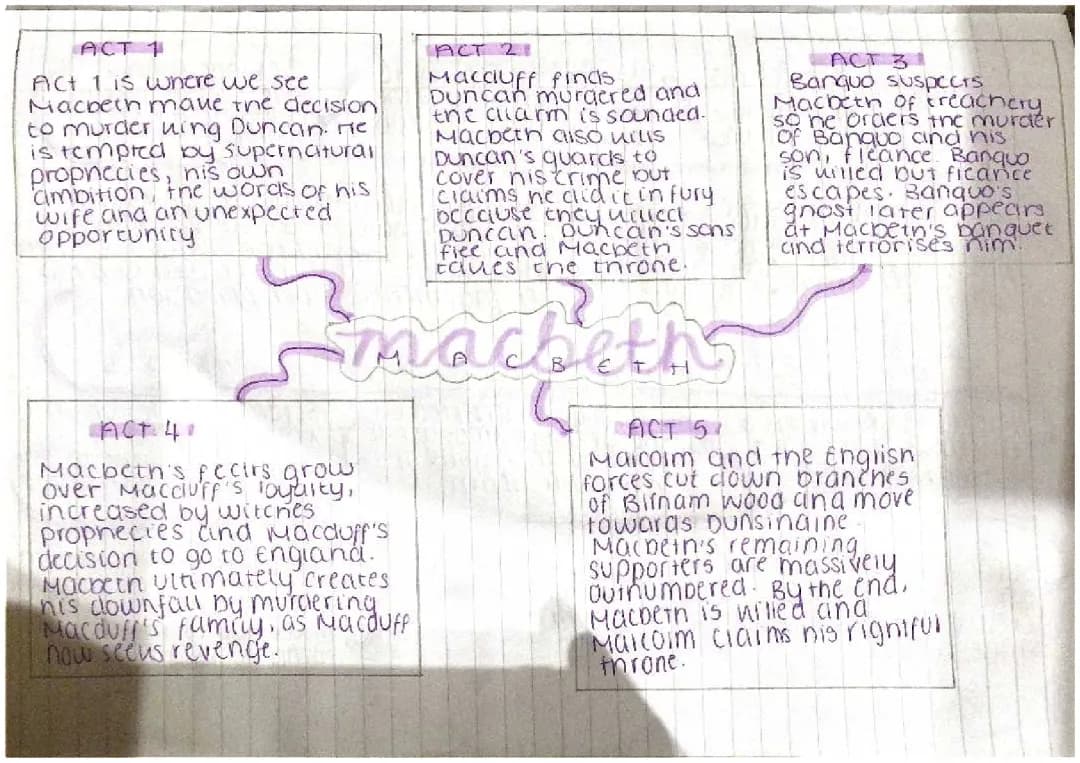 ACT 1
Act 1 is where we see
Macbeth make the decision
to murder king Duncan. He
is tempted by supernatural
prophecies, his own
ambition, the words of his
wife and an unexpected
opportunity
ACT 2
Macduff finds
Duncan murdered and
the alarm is sounded.
Macbeth also kills
Duncan's guards to
cover his crime but
claims he did it in fury
because they killed
Duncan. Duncan's sons
flee and Macbeth
takes the throne.
ACT 3
Banquo suspects
Macbeth of treachery
so he orders the murder
of Banquo and his
son, fleance. Banquo
is killed but fleance
escapes. Banquo's
ghost later appears
at Macbeth's banquet
and terrorises him.
macbeth
MACBETH
ACT 4
Macbeth's fears grow
over Macduff's loyality,
increased by witches
prophecies and Macduff's
decision to go to England.
Macbeth ultimately creates
his downfall by murdering
Macduff's family, as Macduff
now seeks revenge.
ACT 5
Malcolm and the English
forces cut down branches
of Birnam wood and move
towards Dunsinaine.
Macbeth's remaining
supporters are massively
outnumbered. By the end,
Macbeth is killed and
Malcolm claims his rightful
throne.